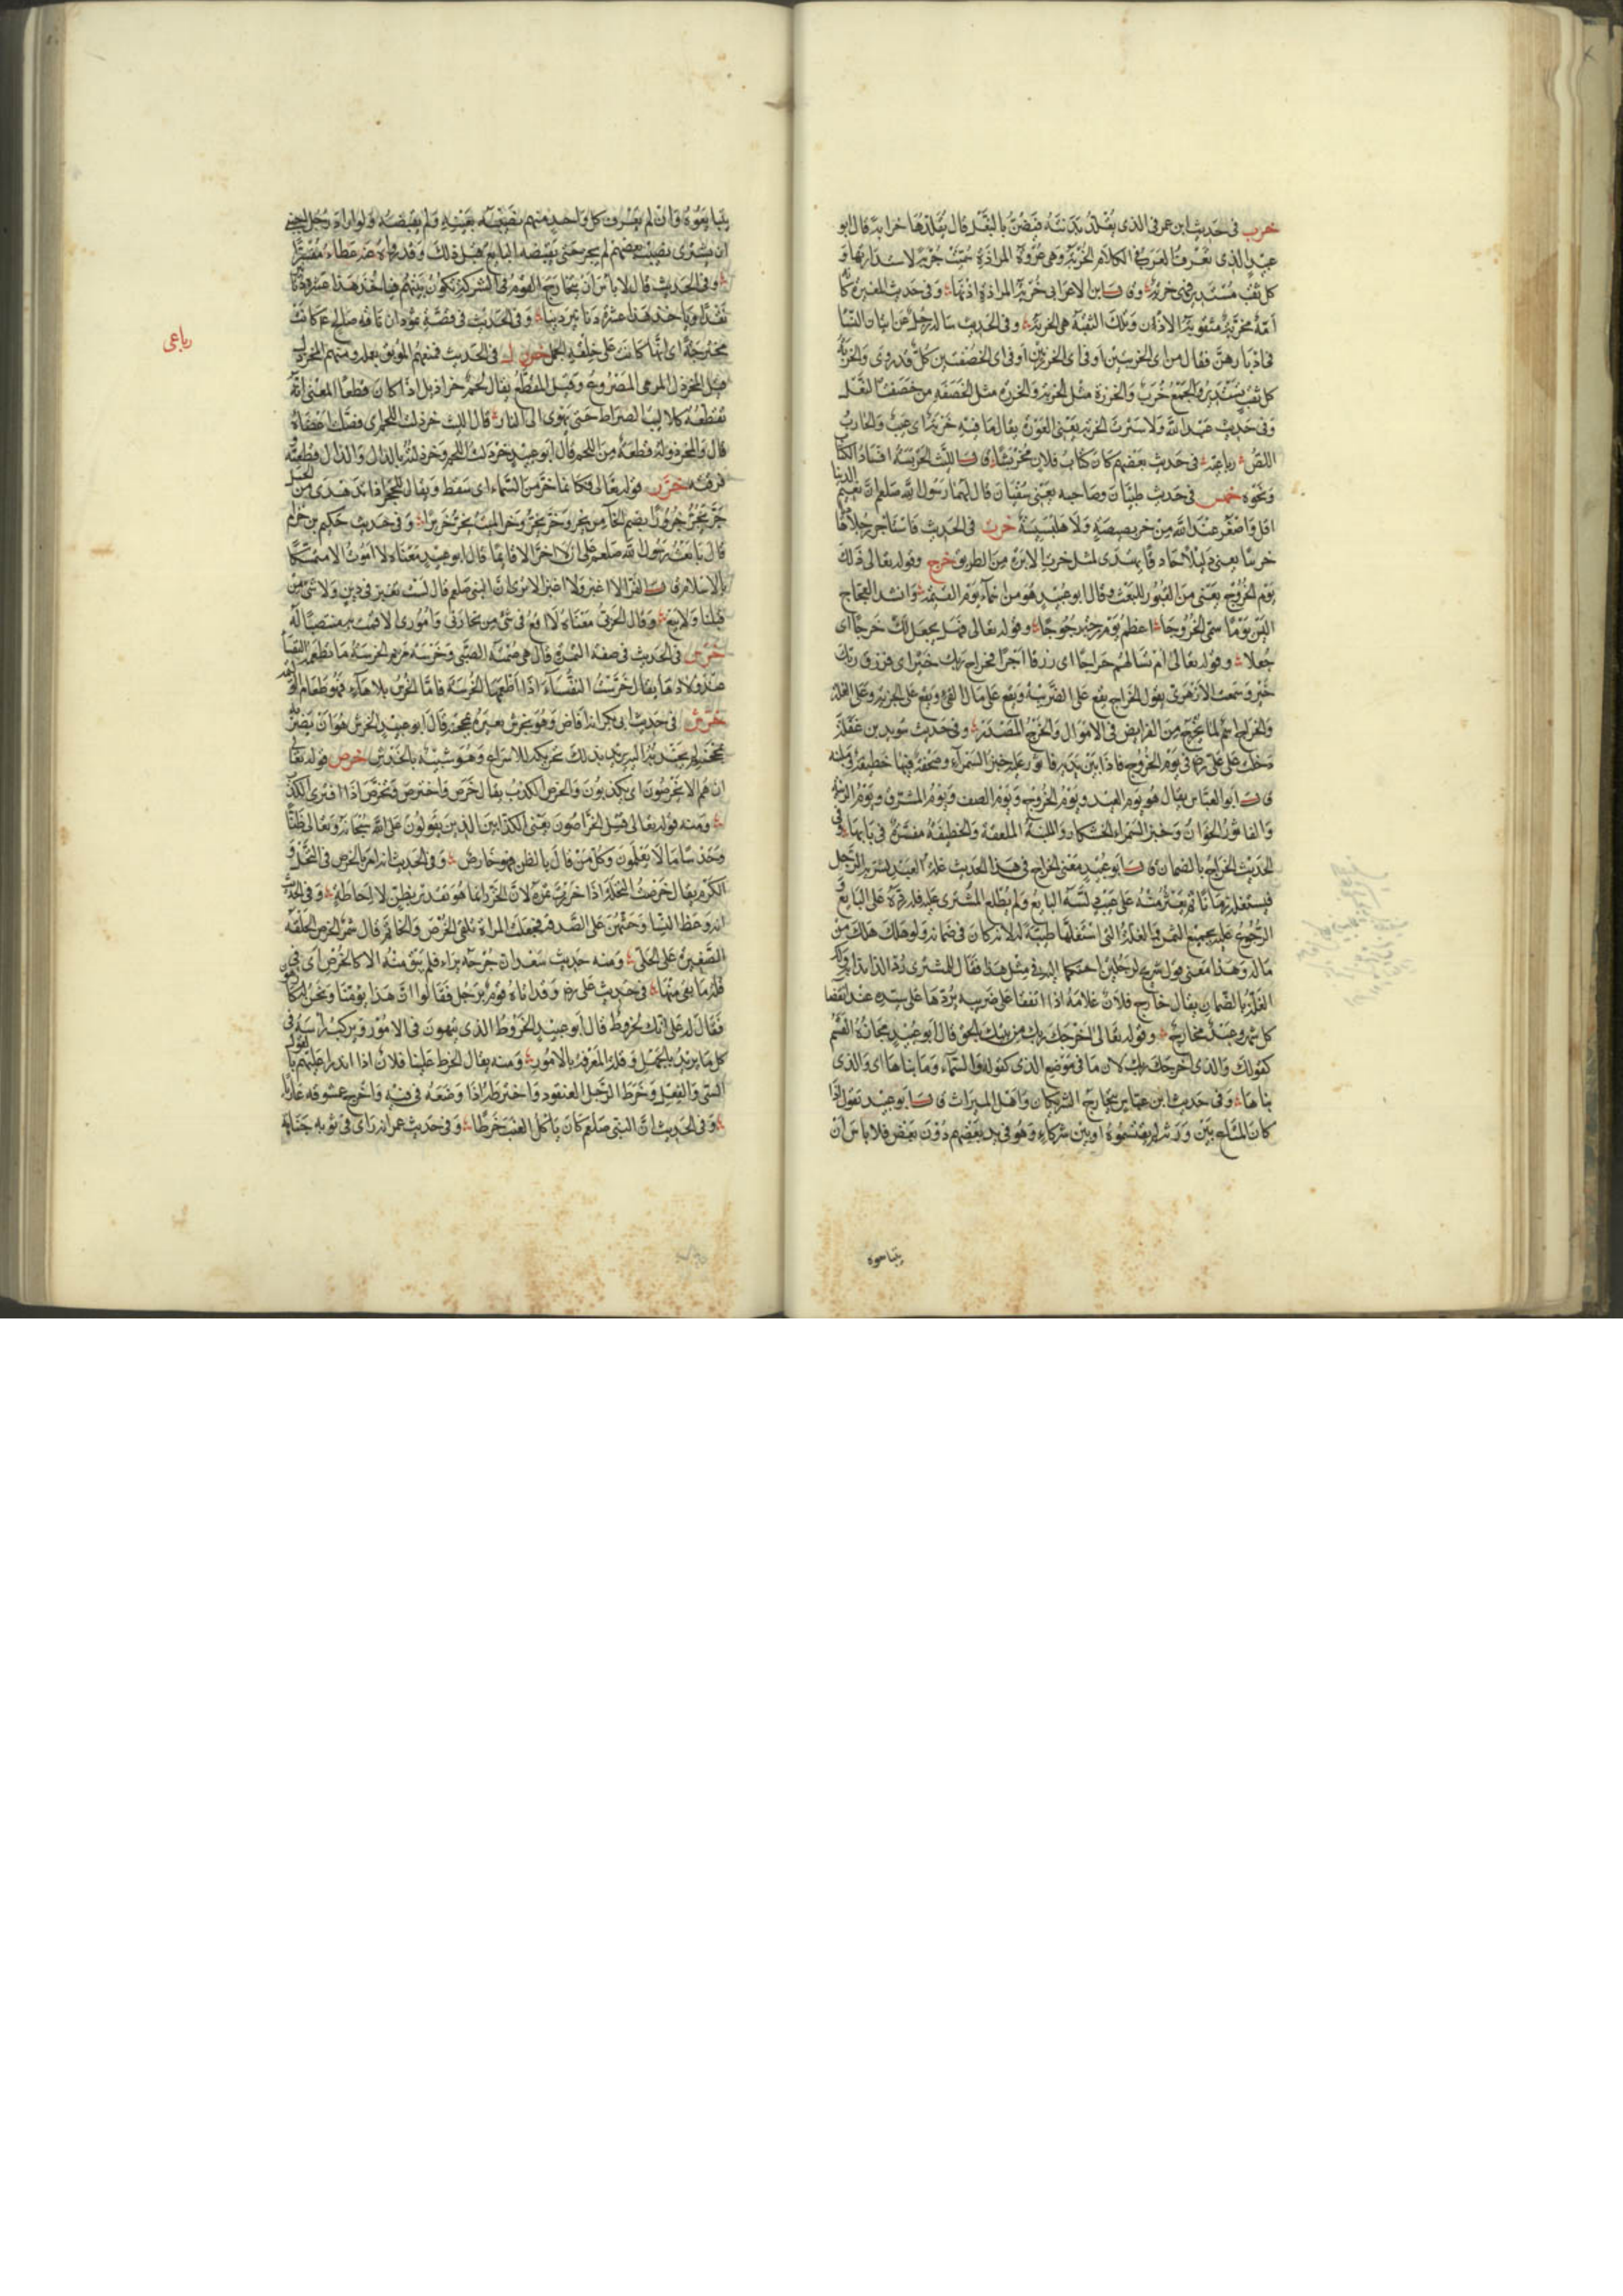 خرب في حديث ابن عمر في الذي يقلد بدنته فيضن بالنعل قال يقلدها خرابة قال ابو
عبيد الذي نعرف في الكلام الخربة وهي عروة المزادة سميت خربة لاستدارتها و
كل ثقب مستدير فهي خربة وقال ابن الاعرابي خربة المزادة اذنها وفي حديث المغيرة كأنه
امة مخربة مثقوبة الاذن وتلك الثقبة هي الخربة وفي الحديث سأله رجل عن اتيان النساء
في ادبارهن فقال من اي الخربتين او في اي الخرزتين او في اي الخصفتين كل قد روي والخربة
كل ثقب مستدير والجمع خرب والخرزة مثل الخربة والخزرة مثل الخصفة من خصفت النعل
وفي حديث عبد الله ولا سترت الخربة يعني العورة يقال ما فيه خربة اي عيب والخارب
اللص رباعيه في حديث بعضهم كان كتاب فلان مخربشا قال الليث الخربشة افساد الكتاب
ونحوه خمس في حديث طبيان وصاحبه يعني سفيان قال لهما رسول الله صلعم ان نعيم الدنيا
اقل واصغر عند الله من خربصيصة ولا هلبسيسة خرت في الحديث فاستأجر رجلا هاديا
خريتا يعني دليلا حاذقا يهتدي لمثل خرت الابرة من الطريق خرج وقوله تعالى ذلك
يوم الخروج يعني من القبور للبعث وقال ابو عبيد هو من اسماء يوم القيمة وانشد العجاج
اليس يوما سمي الخروجا اعظم يوم رجة رجوجا وقوله تعالى فهل نجعل لك خرجا اي
جعلا وقوله تعالى ام تسألهم خراجا اي رزقا اجرا فخراج ربك خير اي فرزق ربك
خير وسمعت الازهري يقول الخراج يقع على الضريبة ويقع على مال الفيء ويقع على الجزية وعلى الغلة
والخراج اسم لما يخرج من الفرائض في الاموال والخرج المصدر وفي حديث سويد بن غفلة
دخلت على علي رع في يوم الخروج فاذا بين يديه فاثور عليه خبز السمراء وصحفة فيها خطيفة وملبنة
قال ابو العباس يقال هو يوم العيد ويوم الخروج ويوم الصف ويوم المشرق ويوم الزينة
والفاثور الخوان وخبز السمراء الخشكار والملبنة الملعقة والخطيفة مفسرة في بابها وفي
الحديث الخراج بالضمان قال ابو عبيد معنى الخراج في هذا الحديث غلة العبد يشتريه الرجل
فيستغله زمانا ثم يعثر منه على عيب دلسه البايع ولم يطلع المشتري عليه فله رده على البايع و
الرجوع عليه بجميع الثمن والغلة التي استغلها طيبة له لانه كان في ضمانه ولو هلك هلك من
ماله وهذا معنى قول شريح لرجلين احتكما اليه في مثل هذا فقال للمشتري رد الداء بدائه ولك
الغلة بالضمان يقال خارج فلان غلامه اذا اتفقا على ضريبة يردها على سيده عند انقضاء
كل شهر وعبد مخارج وقوله تعالى كما اخرجك ربك من بيتك بالحق قال ابو عبيد مجازه القسم
كقولك والذي اخرجك ربك لان ما في موضع الذي كقوله والسماء وما بناها اي والذي
بناها وفي حديث ابن عباس يتخارج الشريكان واهل الميراث قال ابو عبيد يقول اذا
كان المتاع بين ورثة لم يقتسموه او بين شركاء وهو في يد بعضهم دون بعض فلا باس ان
يتبايعوه
يتبايعوه وان لم يعرف كل واحد منهم نصيبه بعينه ولم يقبضه ولو اراد رجل اجنبي
ان يشتري نصيب بعضهم لم يجز حتى يقبضه البايع قبل ذلك وقد رواه عنه عطاء مفسرا
وفي الحديث قال لا باس ان يتخارج القوم في الشركة تكون بينهم فياخذ هذا عشرة دنانير
نقدا وياخذ هذا عشرة دنانير دينا وفي الحديث في قصة ثمود ان ناقة صالح ع كانت
مخترجة اي انها كانت على خلقة الجمل خردل في الحديث فمنهم الموبق بعمله ومنهم المخردل
قيل المخردل المرمي المصروع وقيل المقطع يقال لحم خراديل اذا كان قطعا المعنى انه
تقطعه كلاليب الصراط حتى يهوي الى النار قال الليث خردلت اللحم اي فصلت اعضاءه
قال والخردولة قطعة من اللحم قال ابو عبيد خردلت اللحم وخرذلته بالدال والذال قطعته
فرقته خرر قوله تعالى فكانما خر من السماء اي سقط ويقال للحجر اذا تدهدى من الجبل
خر يخر خرورا بضم الخاء من يخر وخر يخر وخر الميت يخر خريرا وفي حديث حكيم بن حزام
قال بايعت رسول الله صلعم على ان لا اخر الا قائما قال ابو عبيد معناه لا اموت الا متمسكا
بالاسلام قال الفراء لا اغبن ولا اغبن لا تري ان النبي صلعم قال لست تغبن في دين ولا شئ من
قبلنا ولا بيع وقال الحربي معناه لا اقع في شئ من تجارتي واموري الا قمت به منتصبا له
خرس في الحديث في صفة التمرة قال هي صمتة الصبي وخرسة مريم الخرسة ما تطعم النفساء
عند ولادها يقال خرست النفساء اذا اطعمتها الخرسة فاما الخرس بلا هاء فهو طعام الولادة
خرش في حديث ابي بكر انه افاض وهو يخرش بعيره بمحجنه قال ابو عبيد الخرش هو ان يضربه
بمحجنه ثم يجتذبه اليه يريد بذلك تحريكه للاسراع وهو شبيه بالخدش خرص قوله تعالى
ان هم الا يخرصون اي يكذبون والخرص الكذب يقال خرص واخترص وتخرص اذا افترى الكذب
ومنه قوله تعالى قتل الخراصون يعني الكذابين الذين يقولون على الله سبحانه وتعالى ظنا
وحدسا ما لا يعلمون وكل من قال بالظن فهو خارص وفي الحديث انه امر بالخرص في النخل و
الكرم يقال خرصت النخلة اذا حزرت ثمره لان الحزر انما هو تقدير بظن لا احاطة وفي الحديث
انه وعظ النساء وحثهن على الصدقة فجعلت المراة تلقي الخرص والخاتم قال شمر الخرص الحلقة
الصغيرة على الحلي ومنه حديث سعد ان جرحه براء فلم يبق منه الا كالخرص اي في
قلة ما بقي منها في حديث علي رع وقد اتاه قوم برجل فقالوا ان هذا يؤمنا ونحن له كارهون
فقال له علي انك لخروط قال ابو عبيد الخروط الذي يتهور في الامور ويركب راسه في
كل ما يريد بالجهل وقلة المعرفة بالامور ومنه يقال انخرط علينا فلان اذا اندرا عليهم بالقول
السئ والفعل وخرط الرجل العنقود واخترطه اذا وضعه في فيه واخرج عمشوقه عاريا
وفي الحديث ان النبي صلعم كان ياكل العنب خرطا وفي حديث عمر انه راى في ثوبه جنابة
رباعي